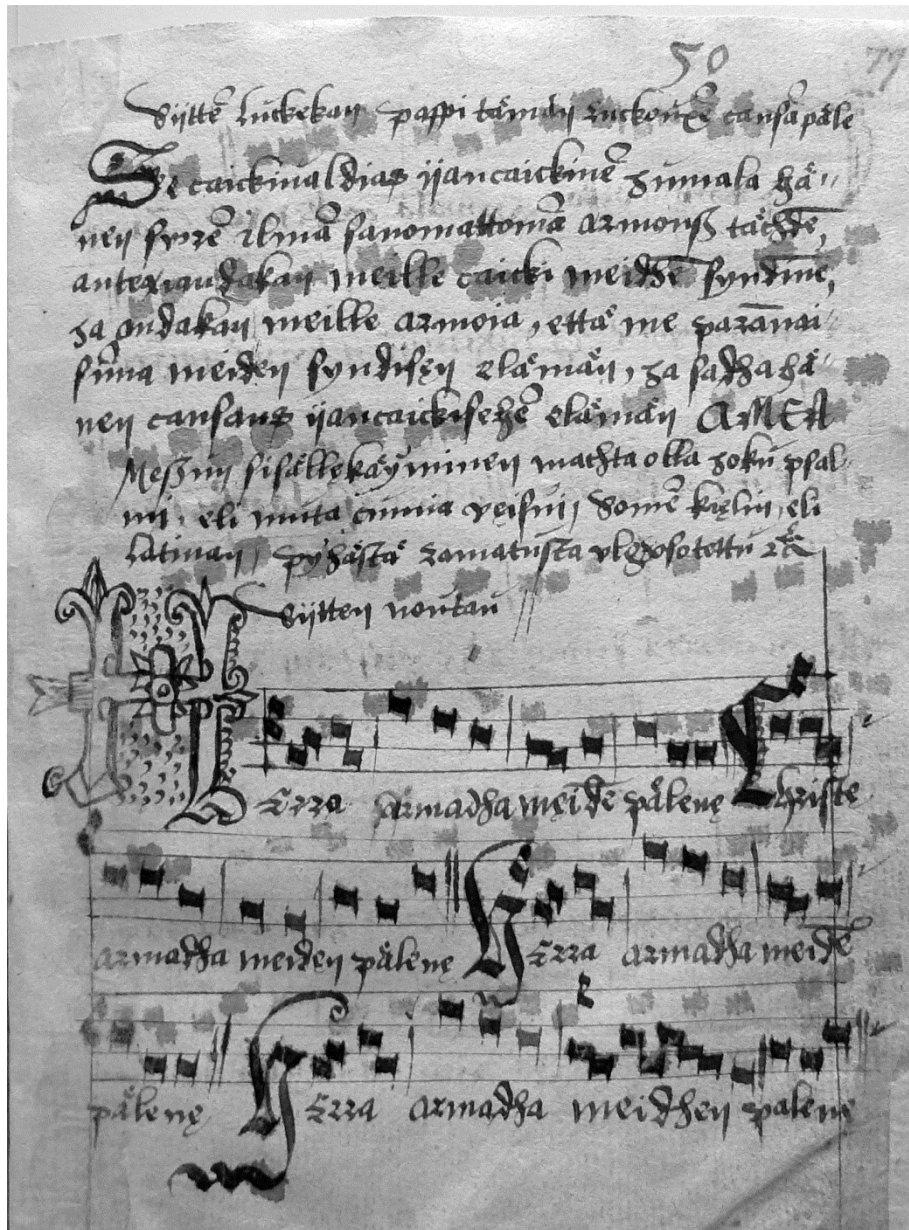 50 77
Sijttē luckekan pappi tämän luckouxē cansā päle
Se caickiualdias ijancaickinē Jumala hä-
nen syxrē ilmā sanomattomā armons tächdē,
antexiandakan meille caicki meidhē syndinē,
ja andakan meille armoia, että me parānai-
sima meiden syndisen elämän, ja sadha hä-
nen cansans ijancaickisehē elämän AMEN
Messun sisällekäyminen machta olla joku psal-
mi, eli muta cunnia veisun, Somē kielin, eli
latinan, pyhästä ramatusta vlgosotettu
Sijtten noutau
HErra armadha meidē pälene Christe
armadha meiden pälene HErra armadha meidē
pälene HErra armadha meidhen pälene